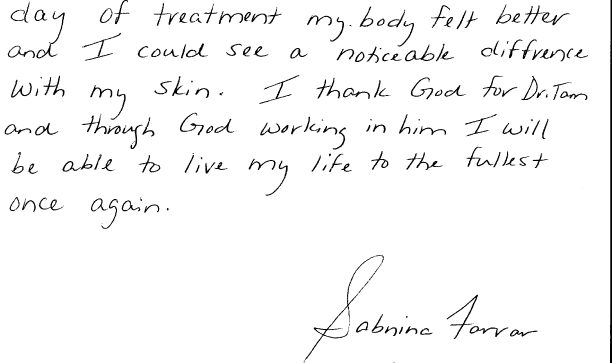 day of treatment my body felt better
and I could see a noticeable diffrence
with my skin. I thank God for Dr. Tam
and through God working in him I will
be able to live my life to the fullest
once again.
Sabrina Farrar